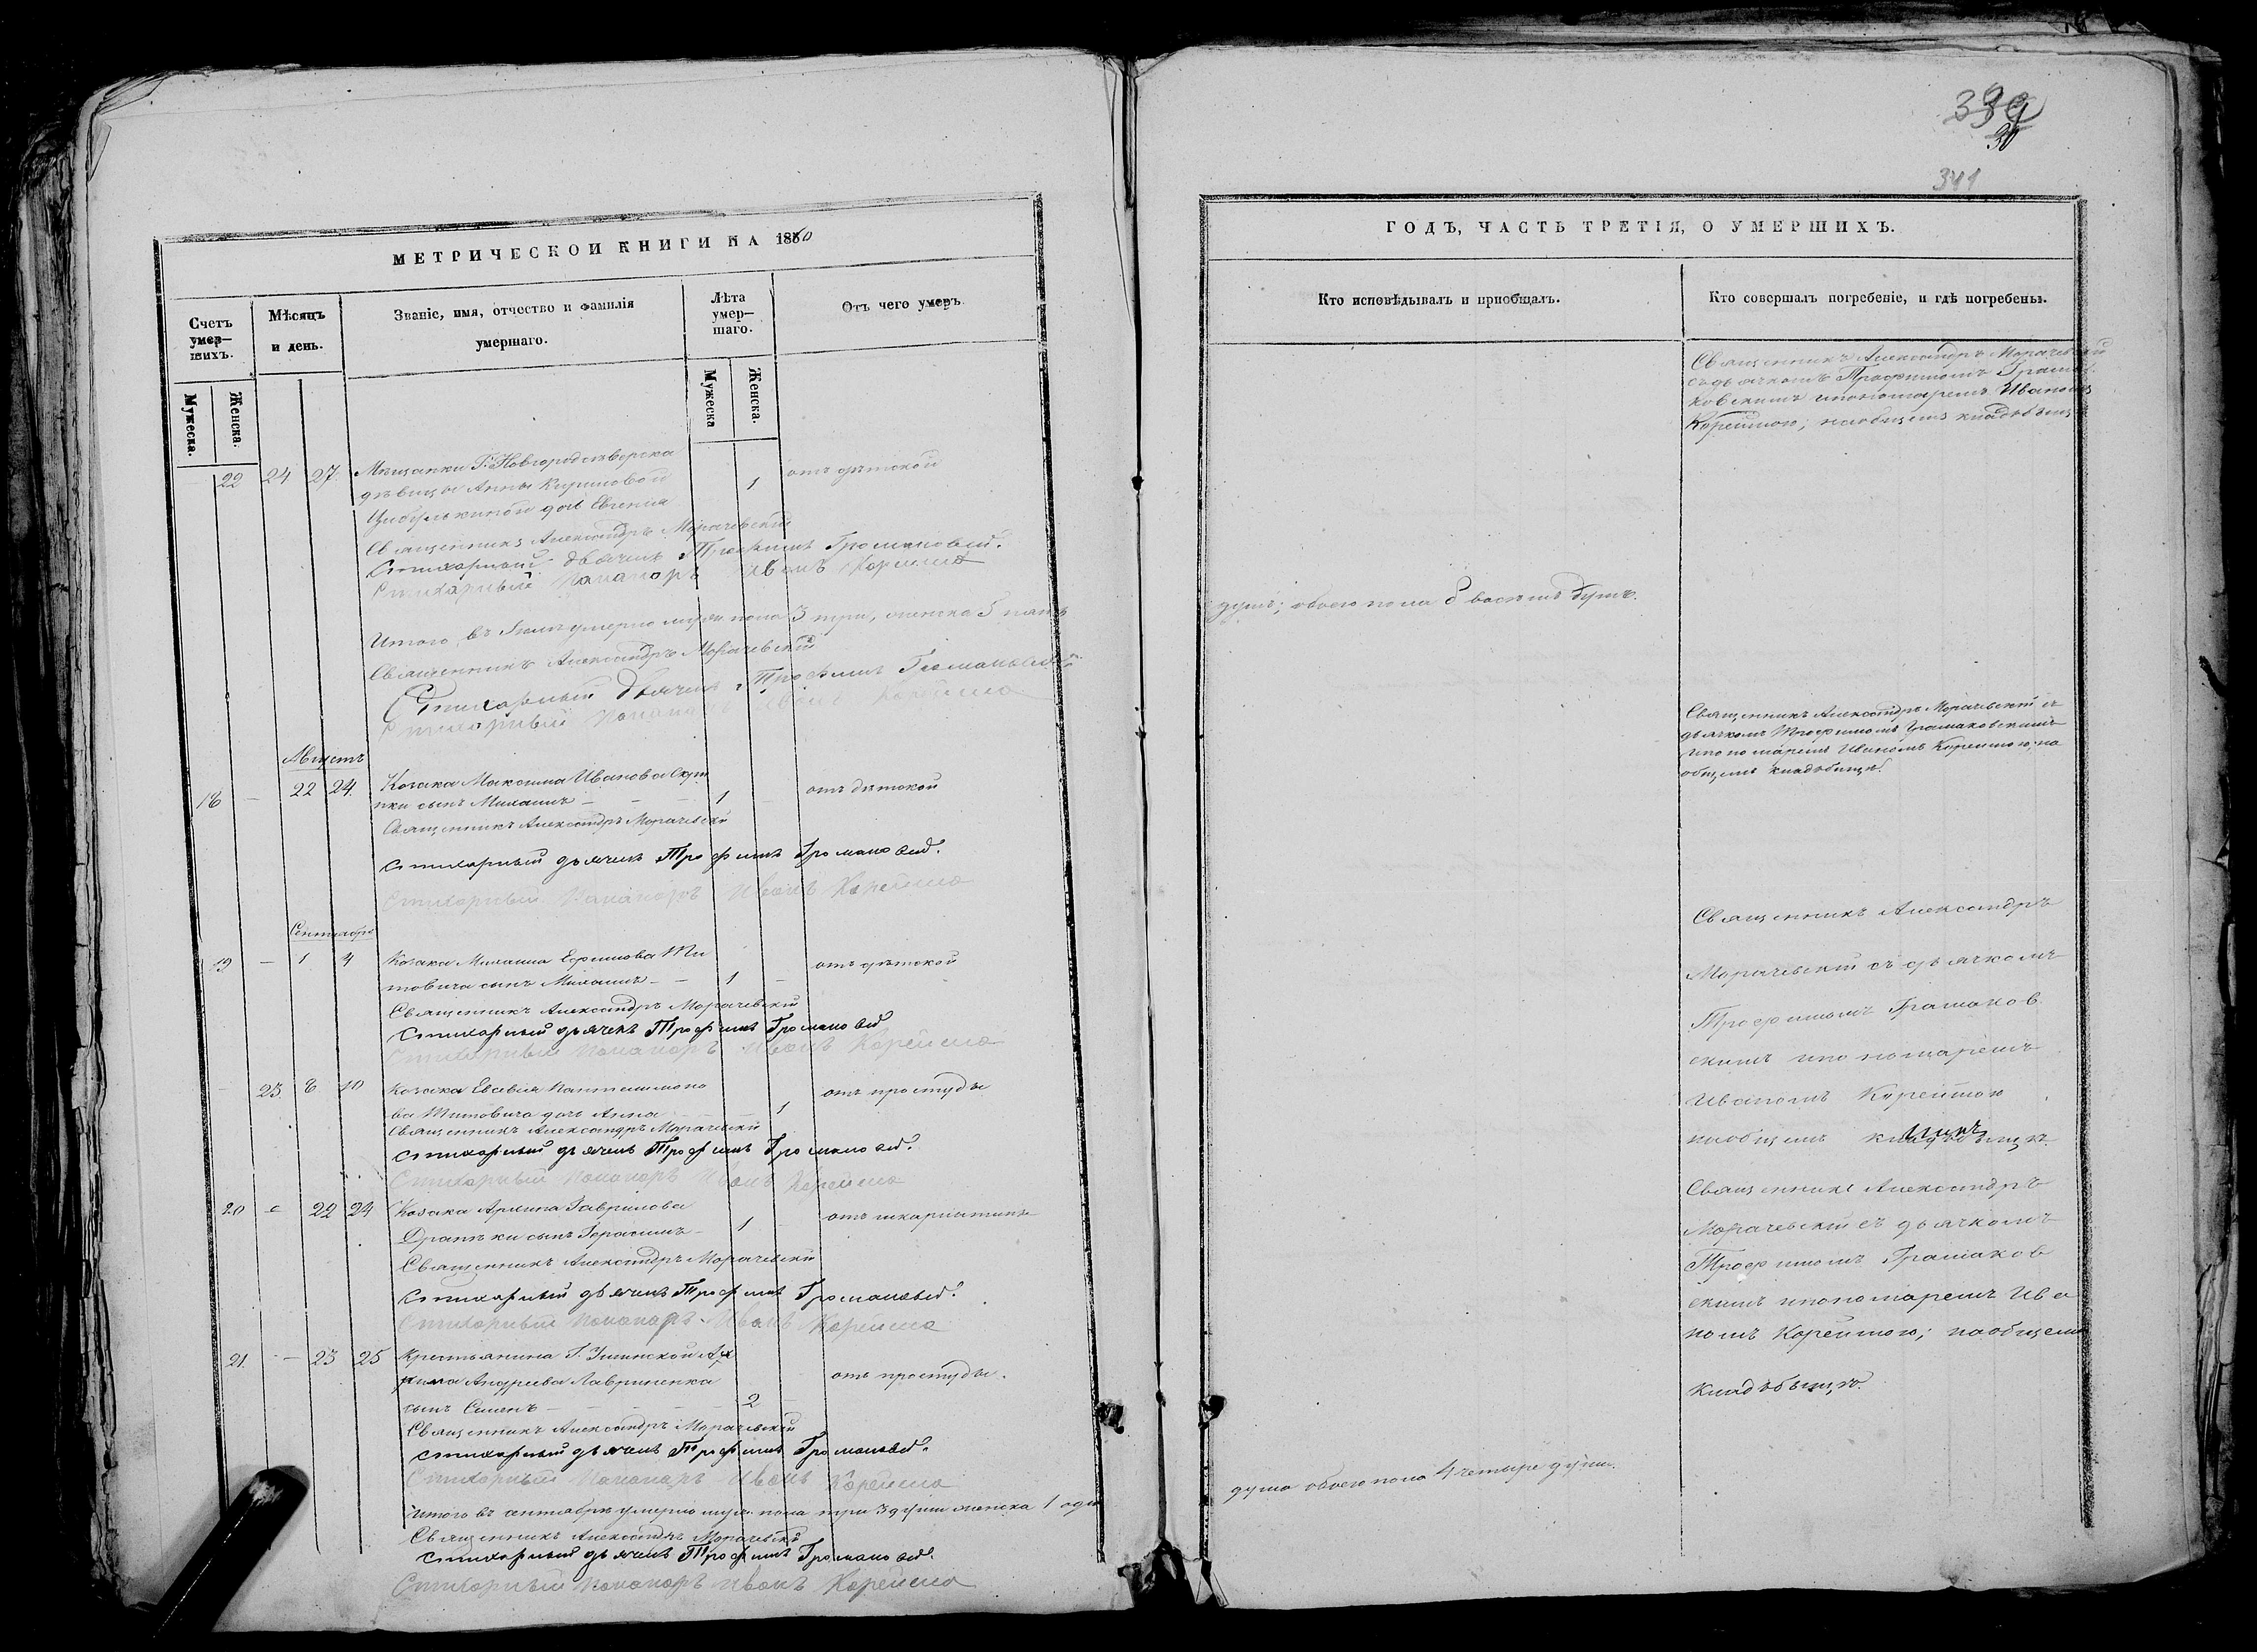 МЕТРИЧЕСКОЙ КНИГИ НА 1860
Счетъ умер-шихъ.
Мѣсяцъ и день.
Званіе, имя, отчество и фамилія умершаго.
Лѣта умер-шаго.
Отъ чего умеръ.
Мужеска.
Женска.
Мужеска
Женска.
22 24 27 Мѣщанки Г. Новгородсѣверска
дѣвицы Анны Кириловой 1 отъ дѣтской
дочь Евгенія
Священникъ Александръ Морачевскій
Стихарный дьячекъ Трофимъ Громаковскій.
Стихарный Понамарь Иванъ Корейша
Итого въ Іюлѣ умерло муж. пола 3 три, женска 5 пять
Священникъ Александръ Морачевскій
Стихарный дьячекъ Трофимъ Громаковскій
Стихарный Понамарь Иванъ Корейша
Августъ
18 — 22 24 Козака Максима Иванова
сынъ Михаилъ — 1 отъ дѣтской
Священникъ Александръ Морачевскій
Стихарный дьячекъ Трофимъ Громаковскій.
Стихарный Понамарь Иванъ Корейша
Сентябрь
19 — 1 4 Козака Михаила Ефимова Ти
товича сынъ Михаилъ — 1 — отъ дѣтской
Священникъ Александръ Морачевскій
Стихарный дьячекъ Трофимъ Громаковскій
Стихарный Понамарь Иванъ Корейша
— 23 8 10 Козака Евсевія Пантелимоно
ва Титовича дочь Анна — 1 отъ простуды
Священникъ Александръ Морачевскій
Стихарный дьячекъ Трофимъ Громаковскій.
Стихарный Понамарь Иванъ Корейша
20 — 22 24 Козака Гаврилова
сынъ Герасимъ — 1 отъ шкарлатины
Священникъ Александръ Морачевскій
Стихарный дьячекъ Трофимъ Громаковскій.
Стихарный Понамарь Иванъ Корейша
21 — 23 25 Крестьянина Г.
Андреева Лавриненка отъ простуды.
сынъ Семенъ — 2
Священникъ Александръ Морачевскій
Стихарный дьячекъ Трофимъ Громаковскій.
Стихарный Понамарь Иванъ Корейша
Итого въ сентябрѣ умерло муж. пола три 3 души женска 1 одна
Священникъ Александръ Морачевскій
Стихарный дьячекъ Трофимъ Громаковскій.
Стихарный Понамарь Иванъ Корейша
341
ГОДЪ, ЧАСТЬ ТРЕТІЯ, О УМЕРШИХЪ.
Кто исповѣдывалъ и пріобщалъ.
Кто совершалъ погребеніе, и гдѣ погребены.
Священникъ Александръ Морачевскій
съ дьячкомъ Трофимомъ Грома
ковскимъ и пономаремъ Иваномъ
Корейшою; на общемъ кладбищѣ
душъ; обоего пола 8 восемь душъ.
Священникъ Александръ Морачевскій съ
дьячкомъ Трофимомъ Грамаковскимъ
и пономаремъ Иваномъ Корейшою; на
общемъ кладбищѣ.
Священникъ Александръ
Морачевскій съ дьячкомъ
Трофимомъ Грамаков
скимъ и пономаремъ
Иваномъ Корейшою
на общемъ кладбищѣ.
Священникъ Александръ
Морачевскій съ дьячкомъ
Трофимомъ Грамаков
скимъ и пономаремъ Ива
номъ Корейшою; на общемъ
кладбищѣ.
душа обоего пола 4 четыре души.